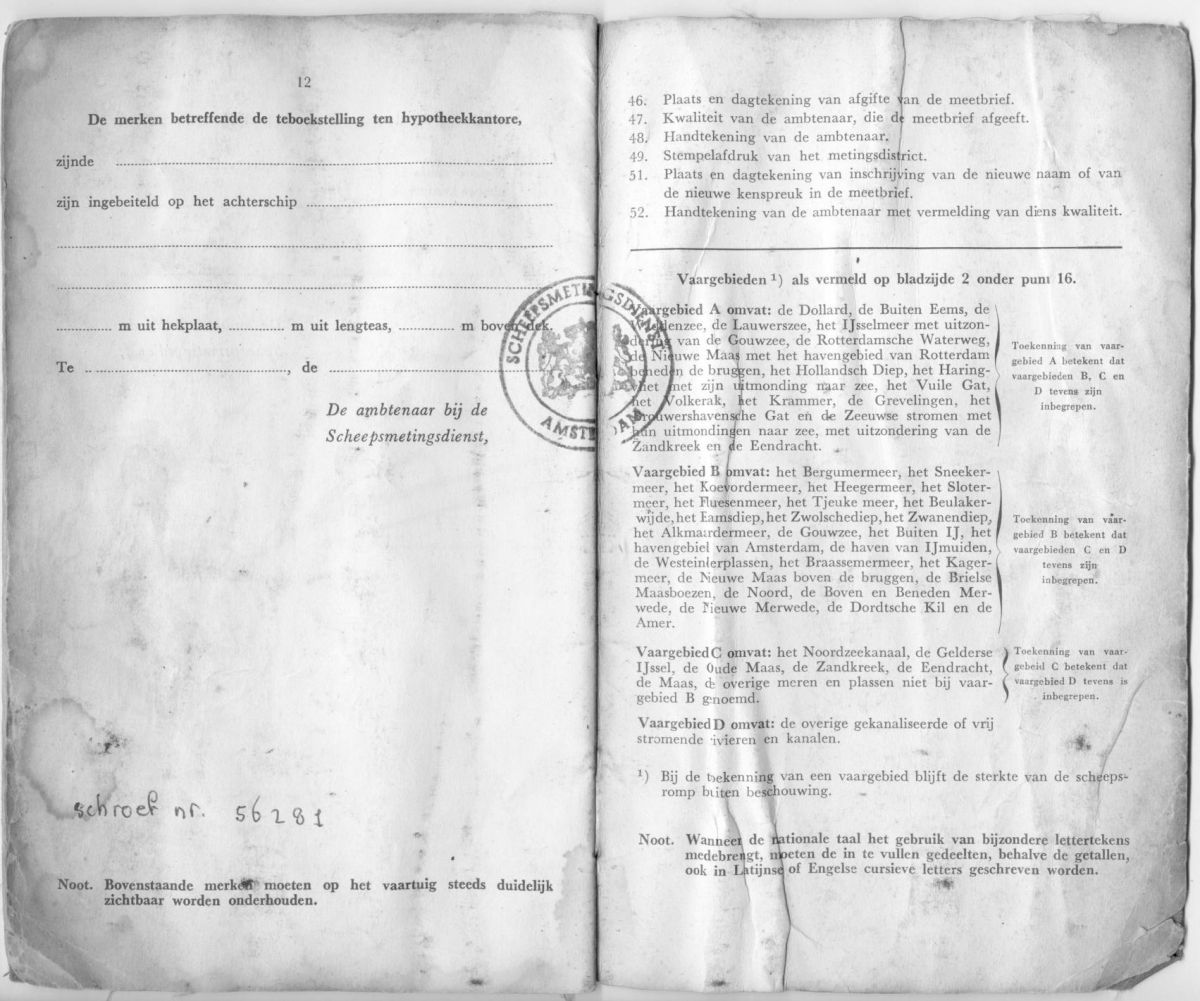 12
De merken betreffende de teboekstelling ten hypotheekkantore,
zijnde
zijn ingebeiteld op het achterschip
m uit hekplaat, m uit lengteas, m boven dek.
Te , de
De ambtenaar bij de
Scheepsmetingsdienst,
SCHEEPSMETINGSDIENST
AMSTERDAM
schroef nr. 56281
Noot. Bovenstaande merken moeten op het vaartuig steeds duidelijk
zichtbaar worden onderhouden.
46. Plaats en dagtekening van afgifte van de meetbrief.
47. Kwaliteit van de ambtenaar, die de meetbrief afgeeft.
48. Handtekening van de ambtenaar.
49. Stempelafdruk van het metingsdistrict.
51. Plaats en dagtekening van inschrijving van de nieuwe naam of van
de nieuwe kenspreuk in de meetbrief.
52. Handtekening van de ambtenaar met vermelding van diens kwaliteit.
Vaargebieden ¹) als vermeld op bladzijde 2 onder punt 16.
Vaargebied A omvat: de Dollard, de Buiten Eems, de
Waddenzee, de Lauwerszee, het IJsselmeer met uitzon-
dering van de Gouwzee, de Rotterdamsche Waterweg,
de Nieuwe Maas met het havengebied van Rotterdam
beneden de bruggen, het Hollandsch Diep, het Haring-
vliet met zijn uitmonding naar zee, het Vuile Gat,
het Volkerak, het Krammer, de Grevelingen, het
Brouwershavensche Gat en de Zeeuwse stromen met
hun uitmondingen naar zee, met uitzondering van de
Zandkreek en de Eendracht.
Toekenning van vaar-
gebied A betekent dat
vaargebieden B, C en
D tevens zijn
inbegrepen.
Vaargebied B omvat: het Bergumermeer, het Sneeker-
meer, het Koevordermeer, het Heegermeer, het Sloter-
meer, het Fluesenmeer, het Tjeuke meer, het Beulaker-
wijde, het Eamsdiep, het Zwolschediep, het Zwanendiep,
het Alkmaardermeer, de Gouwzee, het Buiten IJ, het
havengebied van Amsterdam, de haven van IJmuiden,
de Westeinderplassen, het Braassemermeer, het Kager-
meer, de Nieuwe Maas boven de bruggen, de Brielse
Maasboezen, de Noord, de Boven en Beneden Mer-
wede, de Nieuwe Merwede, de Dordtsche Kil en de
Amer.
Toekenning van vaar-
gebied B betekent dat
vaargebieden C en D
tevens zijn
inbegrepen.
Vaargebied C omvat: het Noordzeekanaal, de Gelderse
IJssel, de Oude Maas, de Zandkreek, de Eendracht,
de Maas, de overige meren en plassen niet bij vaar-
gebied B genoemd.
Toekenning van vaar-
gebeid C betekent dat
vaargebied D tevens is
inbegrepen.
Vaargebied D omvat: de overige gekanaliseerde of vrij
stromende rivieren en kanalen.
¹) Bij de toekenning van een vaargebied blijft de sterkte van de scheeps-
romp buiten beschouwing.
Noot. Wanneer de nationale taal het gebruik van bijzondere lettertekens
medebrengt, moeten de in te vullen gedeelten, behalve de getallen,
ook in Latijnse of Engelse cursieve letters geschreven worden.